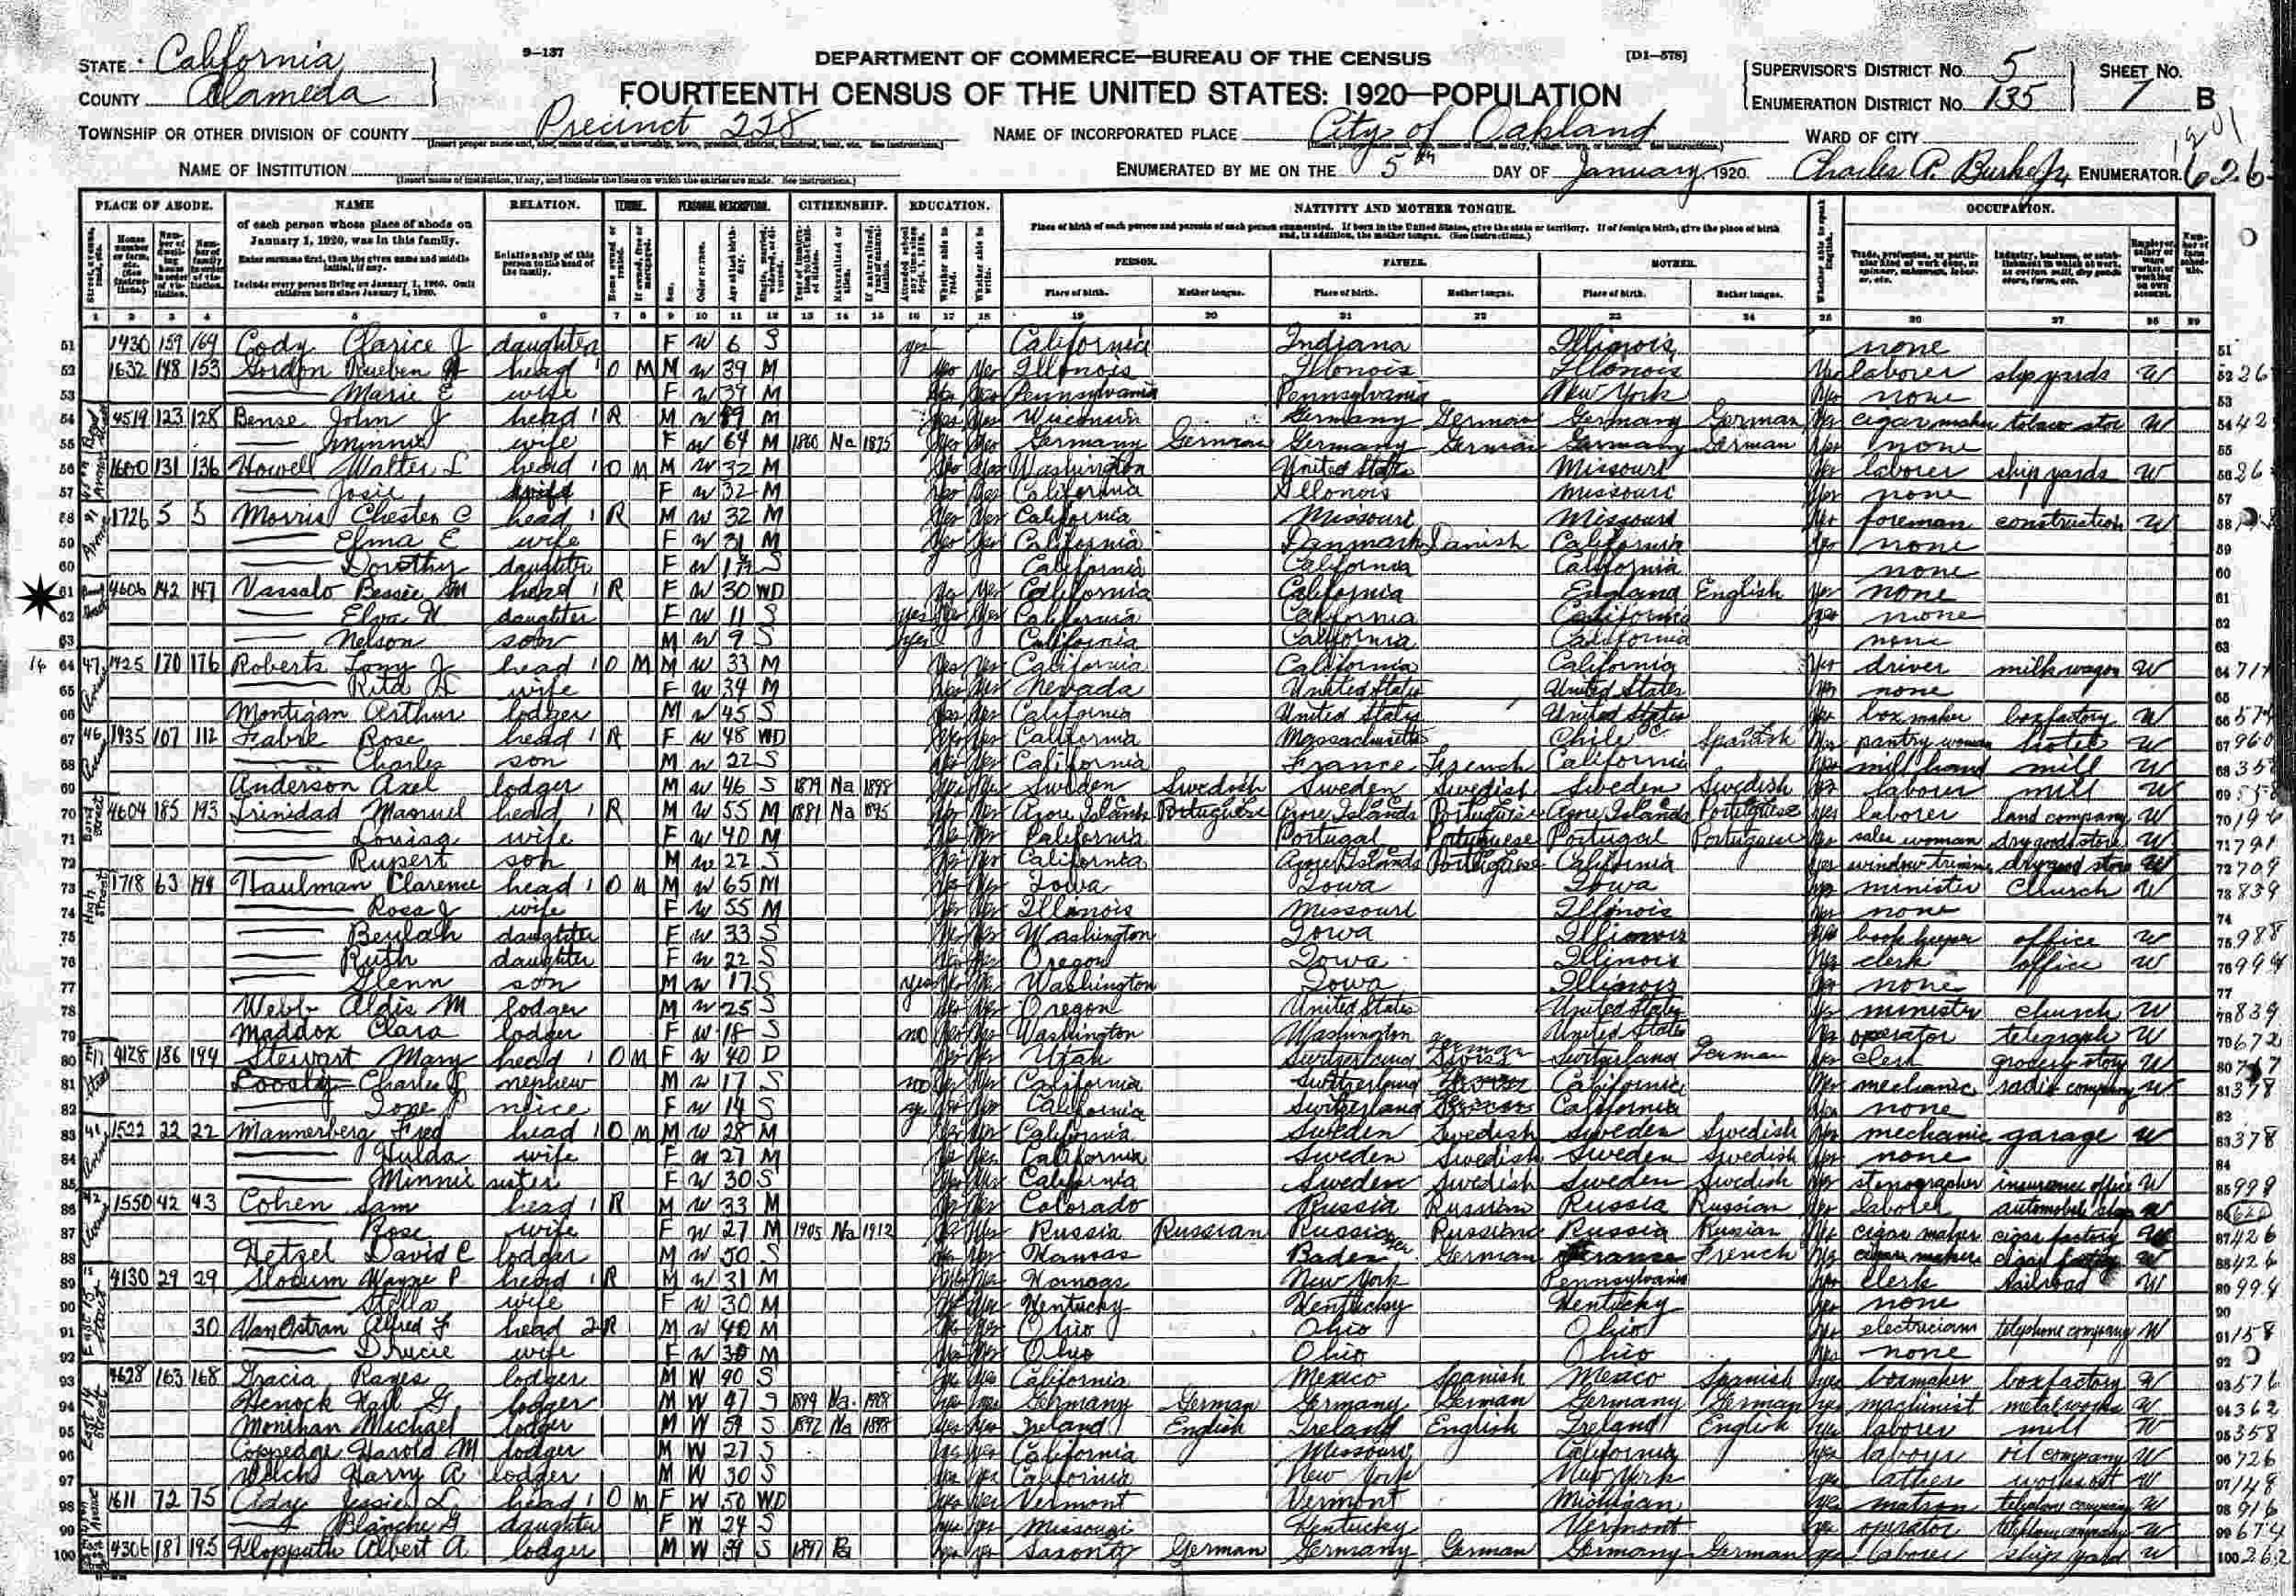 STATE California
9—137
DEPARTMENT OF COMMERCE—BUREAU OF THE CENSUS
[D1—578]
COUNTY Alameda
FOURTEENTH CENSUS OF THE UNITED STATES: 1920—POPULATION
SUPERVISOR'S DISTRICT No. 5
ENUMERATION DISTRICT No. 135
SHEET No. 7 B
TOWNSHIP OR OTHER DIVISION OF COUNTY Precinct 228
NAME OF INCORPORATED PLACE City of Oakland
WARD OF CITY
NAME OF INSTITUTION
ENUMERATED BY ME ON THE 5th DAY OF January 1920. Charles A. Burke Jr ENUMERATOR.
PLACE OF ABODE. NAME RELATION. TENURE. PERSONAL DESCRIPTION. CITIZENSHIP. EDUCATION. NATIVITY AND MOTHER TONGUE. OCCUPATION.
of each person whose place of abode on January 1, 1920, was in this family.
Enter surname first, then the given name and middle initial, if any.
Include every person living on January 1, 1920. Omit children born since January 1, 1920.
Relationship of this person to the head of the family.
PERSON. FATHER. MOTHER.
Place of birth. Mother tongue. Place of birth. Mother tongue. Place of birth. Mother tongue.
51 1430 159 164 Cody Clarice J daughter F W 6 S yes California Indiana Illinois none
52 1632 148 153 Gordon Rueben head 1 O M M W 39 M Yes Yes Illinois Illinois Illinois Yes laborer ship yards W
53 Marie E wife F W 39 M Yes Yes Pennsylvania Pennsylvania New York Yes none
54 4519 123 128 Bense John J head 1 R M W M Yes Yes Wisconsin Germany German Germany German Yes cigar maker W
55 Minnie wife F W 64 M 1860 Na 1875 Yes Yes Germany German Germany German Germany German Yes none
56 1600 131 136 Howell Walter L head 1 O M M W 32 M Yes Yes Washington United States Missouri Yes laborer ship yards W
57 Josie wife F W 32 M Yes Yes California Illonois Missouri Yes none
58 1726 5 5 Morris Chester C head 1 R M W 32 M Yes Yes California Missouri Missouri Yes foreman construction W
59 Elma E wife F W 31 M Yes Yes California Danmark Danish California Yes none
60 Dorothy daughter F W S California California California none
61 4606 142 147 Vassalo Bessie M head 1 R F W 30 WD Yes Yes California California England English Yes none
62 Elva daughter F W 11 S yes Yes Yes California California California yes none
63 Nelson son M W 9 S yes California California California none
64 1425 170 176 Roberts Tony J head 1 O M M W 33 M Yes Yes California California California Yes driver milk wagon W
65 Rita wife F W 34 M Yes Yes Nevada United States United States Yes none
66 Montigan Arthur lodger M W 45 S Yes Yes California United States United States Yes box maker box factory W
67 1935 107 112 Fabre Rose head 1 R F W 48 WD Yes Yes California Massachusetts Chile Spanish Yes pantry woman hotel W
68 Charles son M W 22 S Yes Yes California France French California Yes mill hand mill W
69 Anderson Axel lodger M W 46 S 1879 Na 1898 Yes Yes Sweden Swedish Sweden Swedish Sweden Swedish Yes laborer mill W
70 4604 185 193 Trinidad Manuel head 1 R M W 55 M 1881 Na 1895 Yes Yes Azore Islands Portuguese Azore Islands Portuguese Azore Islands Portuguese yes laborer land company W
71 Louisa wife F W 40 M Yes Yes California Portugal Portuguese Portugal Portuguese Yes sales woman dry good store W
72 Rupert son M W 22 S Yes Yes California Azore Islands Portuguese California Yes window trimmer dry good store W
73 1718 63 Haulman Clarence head 1 O M M W 65 M Yes Yes Iowa Iowa Iowa Yes minister Church W
74 Rosa J wife F W 55 M Yes Yes Illinois Missouri Illinois Yes none
75 Beulah daughter F W 33 S Yes Yes Washington Iowa Illinois Yes book keeper office W 988
76 Ruth daughter F W 22 S Yes Yes Oregon Iowa Illinois Yes clerk office W 994
77 Glenn son M W 17 S yes Yes Yes Washington Iowa Illinois Yes none
78 Webb Aldis M lodger M W 25 S Yes Yes Oregon United States United States Yes minister church W 839
79 Maddox Clara lodger F W 18 S no Yes Yes Washington Washington United States Yes operator telegraph W 672
80 4128 186 194 Stewart Mary head 1 O M F W 40 D Yes Yes Utah Switzerland German Switzerland German Yes clerk grocery store W
81 Loosly Charles nephew M W 17 S no Yes Yes California Switzerland California Yes mechanic radio company W 378
82 Ione neice F W 14 S Yes Yes California Switzerland California Yes none
83 1522 22 22 Mannerberg Fred head 1 O M M W 28 M Yes Yes California Sweden Swedish Sweden Swedish Yes mechanic garage W 378
84 Hulda wife F W 27 M Yes Yes California Sweden Swedish Sweden Swedish Yes none
85 Minnie sister F W 30 S Yes Yes California Sweden Swedish Sweden Swedish Yes stenographer insurance office W 999
86 1550 42 43 Cohen Sam head 1 R M W 33 M Yes Yes Colorado Russia Russian Russia Russian Yes laborer automobile W
87 Rose wife F W 27 M 1905 Na 1912 Yes Yes Russia Russian Russia Russian Russia Russian Yes cigar maker cigar factory W 426
88 Hetzel David C lodger M W 50 S Yes Yes Kansas Baden German France French Yes cigar maker cigar factory W 426
89 4130 29 29 Slocum Wayne P head 1 R M W 31 M Yes Yes New York Pennsylvania Yes clerk Railroad W 994
90 Stella wife F W 30 M Yes Yes Kentucky Kentucky Kentucky Yes none
91 30 VanOstran Alfred F head 2 R M W 40 M Yes Yes Ohio Ohio Ohio Yes electrician telephone company W 158
92 Drucie wife F W 30 M Yes Yes Ohio Ohio Ohio Yes none
93 4628 163 168 Gracia Rayes lodger M W 40 S Yes Yes California Mexico Spanish Mexico Spanish yes boxmaker box factory W 576
94 Henock Hall G lodger M W 47 S 1899 Na Yes Yes Germany German Germany German Germany German yes machinist metal works W 362
95 Monihan Michael lodger M W 59 S 1892 Na 1898 Yes Yes Ireland English Ireland English Ireland English yes laborer mill W 358
96 Coppedge Harold M lodger M W 27 S Yes Yes California Missouri California yes laborer oil company W 726
97 Welch Harry A lodger M W 30 S Yes Yes California New York New York yes lather W 148
98 1611 72 75 Jessie L head 1 O M F W 50 WD Yes Yes Vermont Vermont Michigan yes matron telephone company W 916
99 Blanche G daughter F W 24 S yes yes Missouri Kentucky Vermont yes operator telephone company W 674
100 4306 187 195 Klopputh Albert A lodger M W 39 S 1897 Pa yes yes Saxony German Germany German Germany German yes laborer ship yard W 262